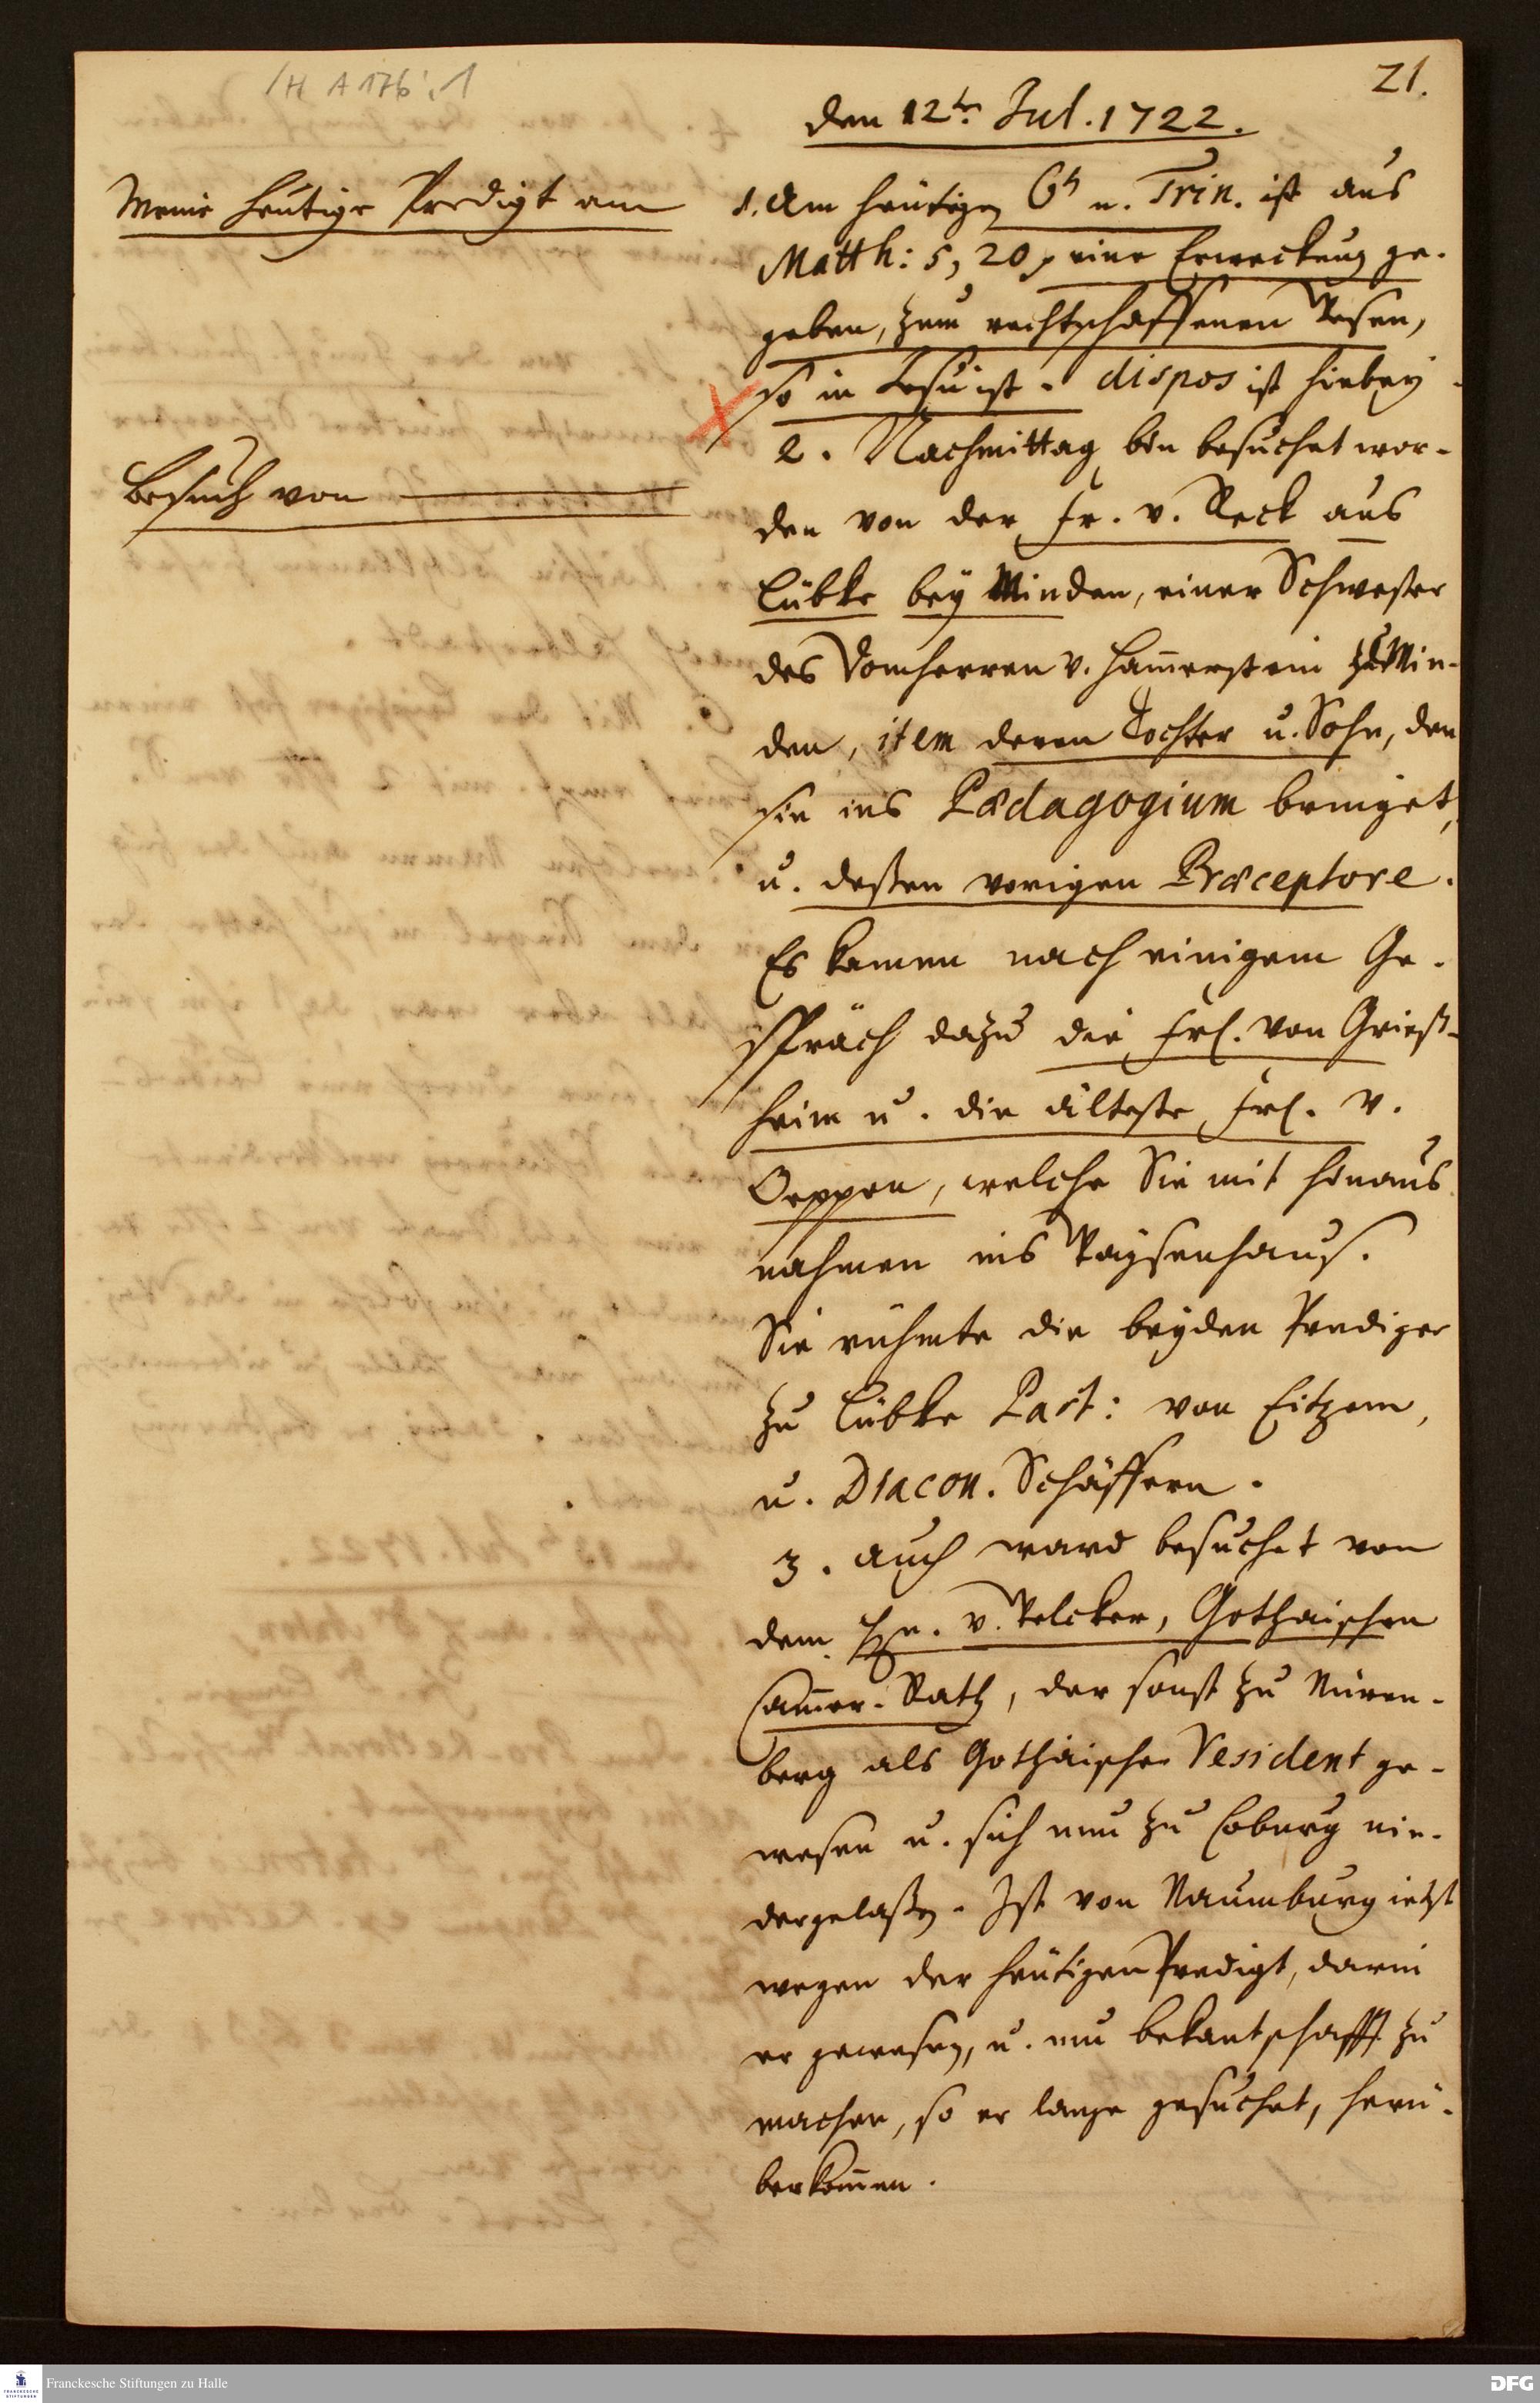 H A 176 : 1
21.
den 12ten Jul. 1722.
Meine heutige Predigt am
1. Am heutigen 6ten n. Trin. ist aus
Matth: 5, 20 eine Erweckung ge-
geben, zum rechtschaffenen Wesen,
so in Jesu ist. dispos ist hiebey
2. Nachmittag bin besuchet wor-
Besuch von
den von der Fr. v. Reck aus
Lübke bey Minden, einer Schwester
des Domherren v. Ham̃erstein zu Min-
den, item deren Tochter u. Sohn, den
sie ins Pædagogium bringet,
u. deßen vorigen Præceptore.
Es kamen nach einigem Ge-
spräch dazu die Frl. von Grieß-
heim u. die älteste Frl. v.
Oeppen, welche Sie mit hinaus
nahmen ins Waysenhaus.
Sie rühmte die beyden Prediger
zu Lübke Past: von Eitzem,
u. Diacon. Schäffern.
3. Auch ward besuchet von
dem Hn. v. Welcker, Gothaischen
Cam̃er-Rath, der sonst zu Nüren-
berg als Gothaischer Resident ge-
wesen u. sich nun zu Coburg nie-
dergelaßen. Ist von Naumburg ietzt
wegen der heutigen Predigt, darin
er gewesen, u. um bekantschafft zu
machen, so er lange gesuchet, herü-
berkom̃en.
Franckesche Stiftungen zu Halle
DFG